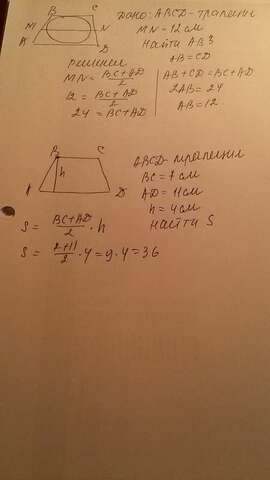 B C
M N
A D
Дано: ABCD-трапеция
MN = 12 см
Найти AB?
Решение
AB = CD
MN = BC+AD/2
12 = BC+AD/2
24 = BC+AD
AB+CD = BC+AD
2AB = 24
AB = 12
B C
h
A D
ABCD-трапеция
BC = 7 см
AD = 11 см
h = 4 см
Найти S
S = BC+AD/2 · h
S = 7+11/2 · 4 = 9 · 4 = 36